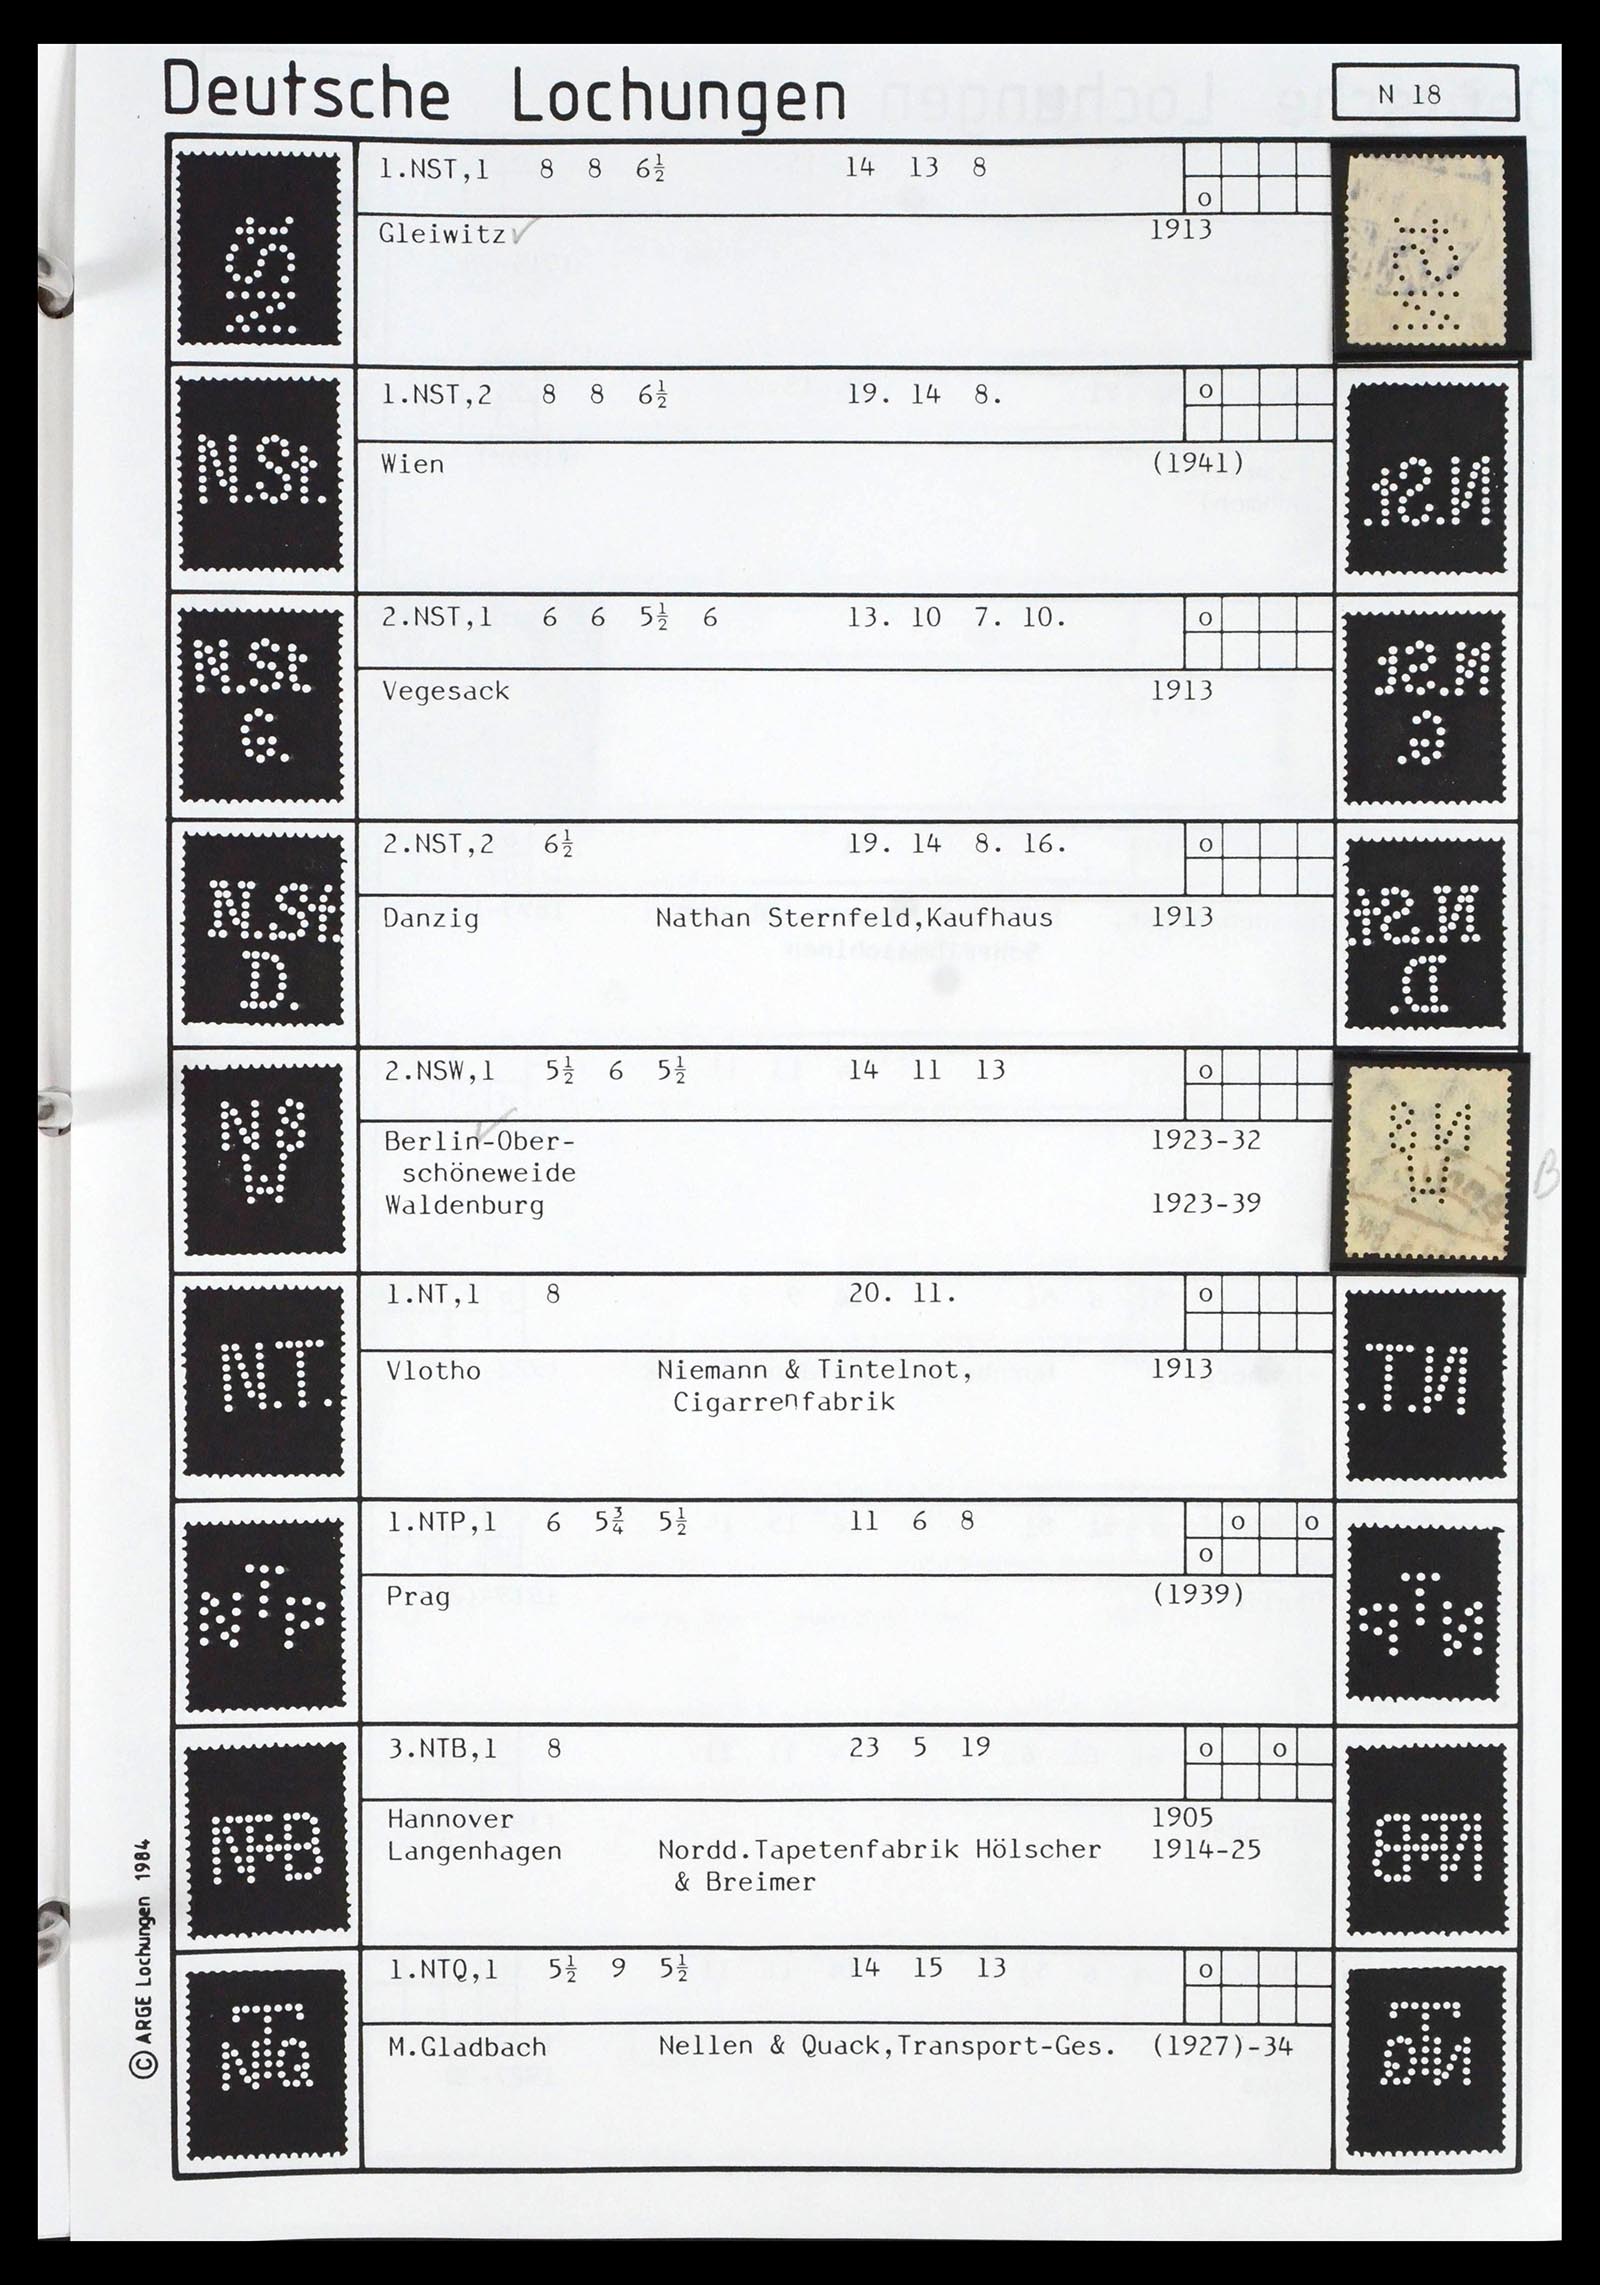 Deutsche Lochungen
N 18
1.NST,1 8 8 6½ 14 13 8
o
Gleiwitz ✓ 1913
NSt
1.NST,2 8 8 6½ 19. 14 8. o
Wien (1941)
N.St.
2.NST,1 6 6 5½ 6 13. 10 7. 10. o
Vegesack 1913
N.St.
G.
2.NST,2 6½ 19. 14 8. 16. o
Danzig Nathan Sternfeld,Kaufhaus 1913
N.St.
D.
2.NSW,1 5½ 6 5½ 14 11 13 o
Berlin-Ober- 1923-32
schöneweide
Waldenburg 1923-39
NS
W
B
1.NT,1 8 20. 11. o
Vlotho Niemann & Tintelnot, 1913
Cigarrenfabrik
N.T.
1.NTP,1 6 5¾ 5½ 11 6 8 o o
o
Prag (1939)
NTP
3.NTB,1 8 23 5 19 o o
Hannover 1905
Langenhagen Nordd.Tapetenfabrik Hölscher 1914-25
& Breimer
NTB
1.NTQ,1 5½ 9 5½ 14 15 13 o
M.Gladbach Nellen & Quack,Transport-Ges. (1927)-34
T
NQ
© ARGE Lochungen 1984